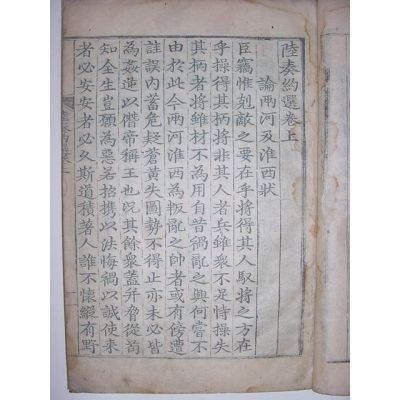 陸奏約選卷上
論兩河及淮西狀
臣竊惟剋敵之要在乎將得其人馭將之方在
乎操得其柄將非其人者兵雖衆不足恃操失
其柄者將雖材不為用自昔禍亂之興何嘗不
由於此今兩河淮西為叛亂之帥者或有傍遭
詿誤內蓄危疑蒼黃失圖勢不得止亦未必皆
為姦逆以僭帝稱王也況其餘衆蓋並脅從苟
知全生豈願為惡若招携以法悔禍以誠使來
者必安安者必久斯道積著人誰不懷縱有野